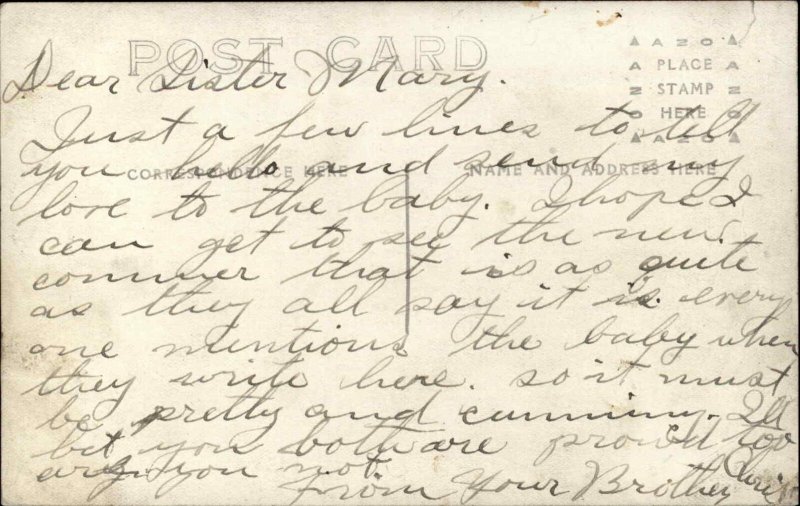 POST CARD
AZO
PLACE
STAMP
HERE
AZO
CORRESPONDENCE HERE
NAME AND ADDRESS HERE
Dear Sister Mary.
Just a few lines to tell
you hello and send my
love to the baby. I hope I
can get to see the new
commer that is as qute
as they all say it is. every
one mentions the baby when
they write here. so it must
be pretty and cunning. I'll
bet you both are proud too
are you not
From Your Brother